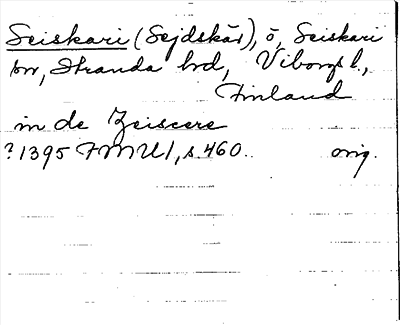 Seiskari (Sejdskär), ö, Seiskari
kn, Stranda hd, Viborgs l.,
Finland
in de Zeiscere
? 1395 FMU I, s. 460. orig.